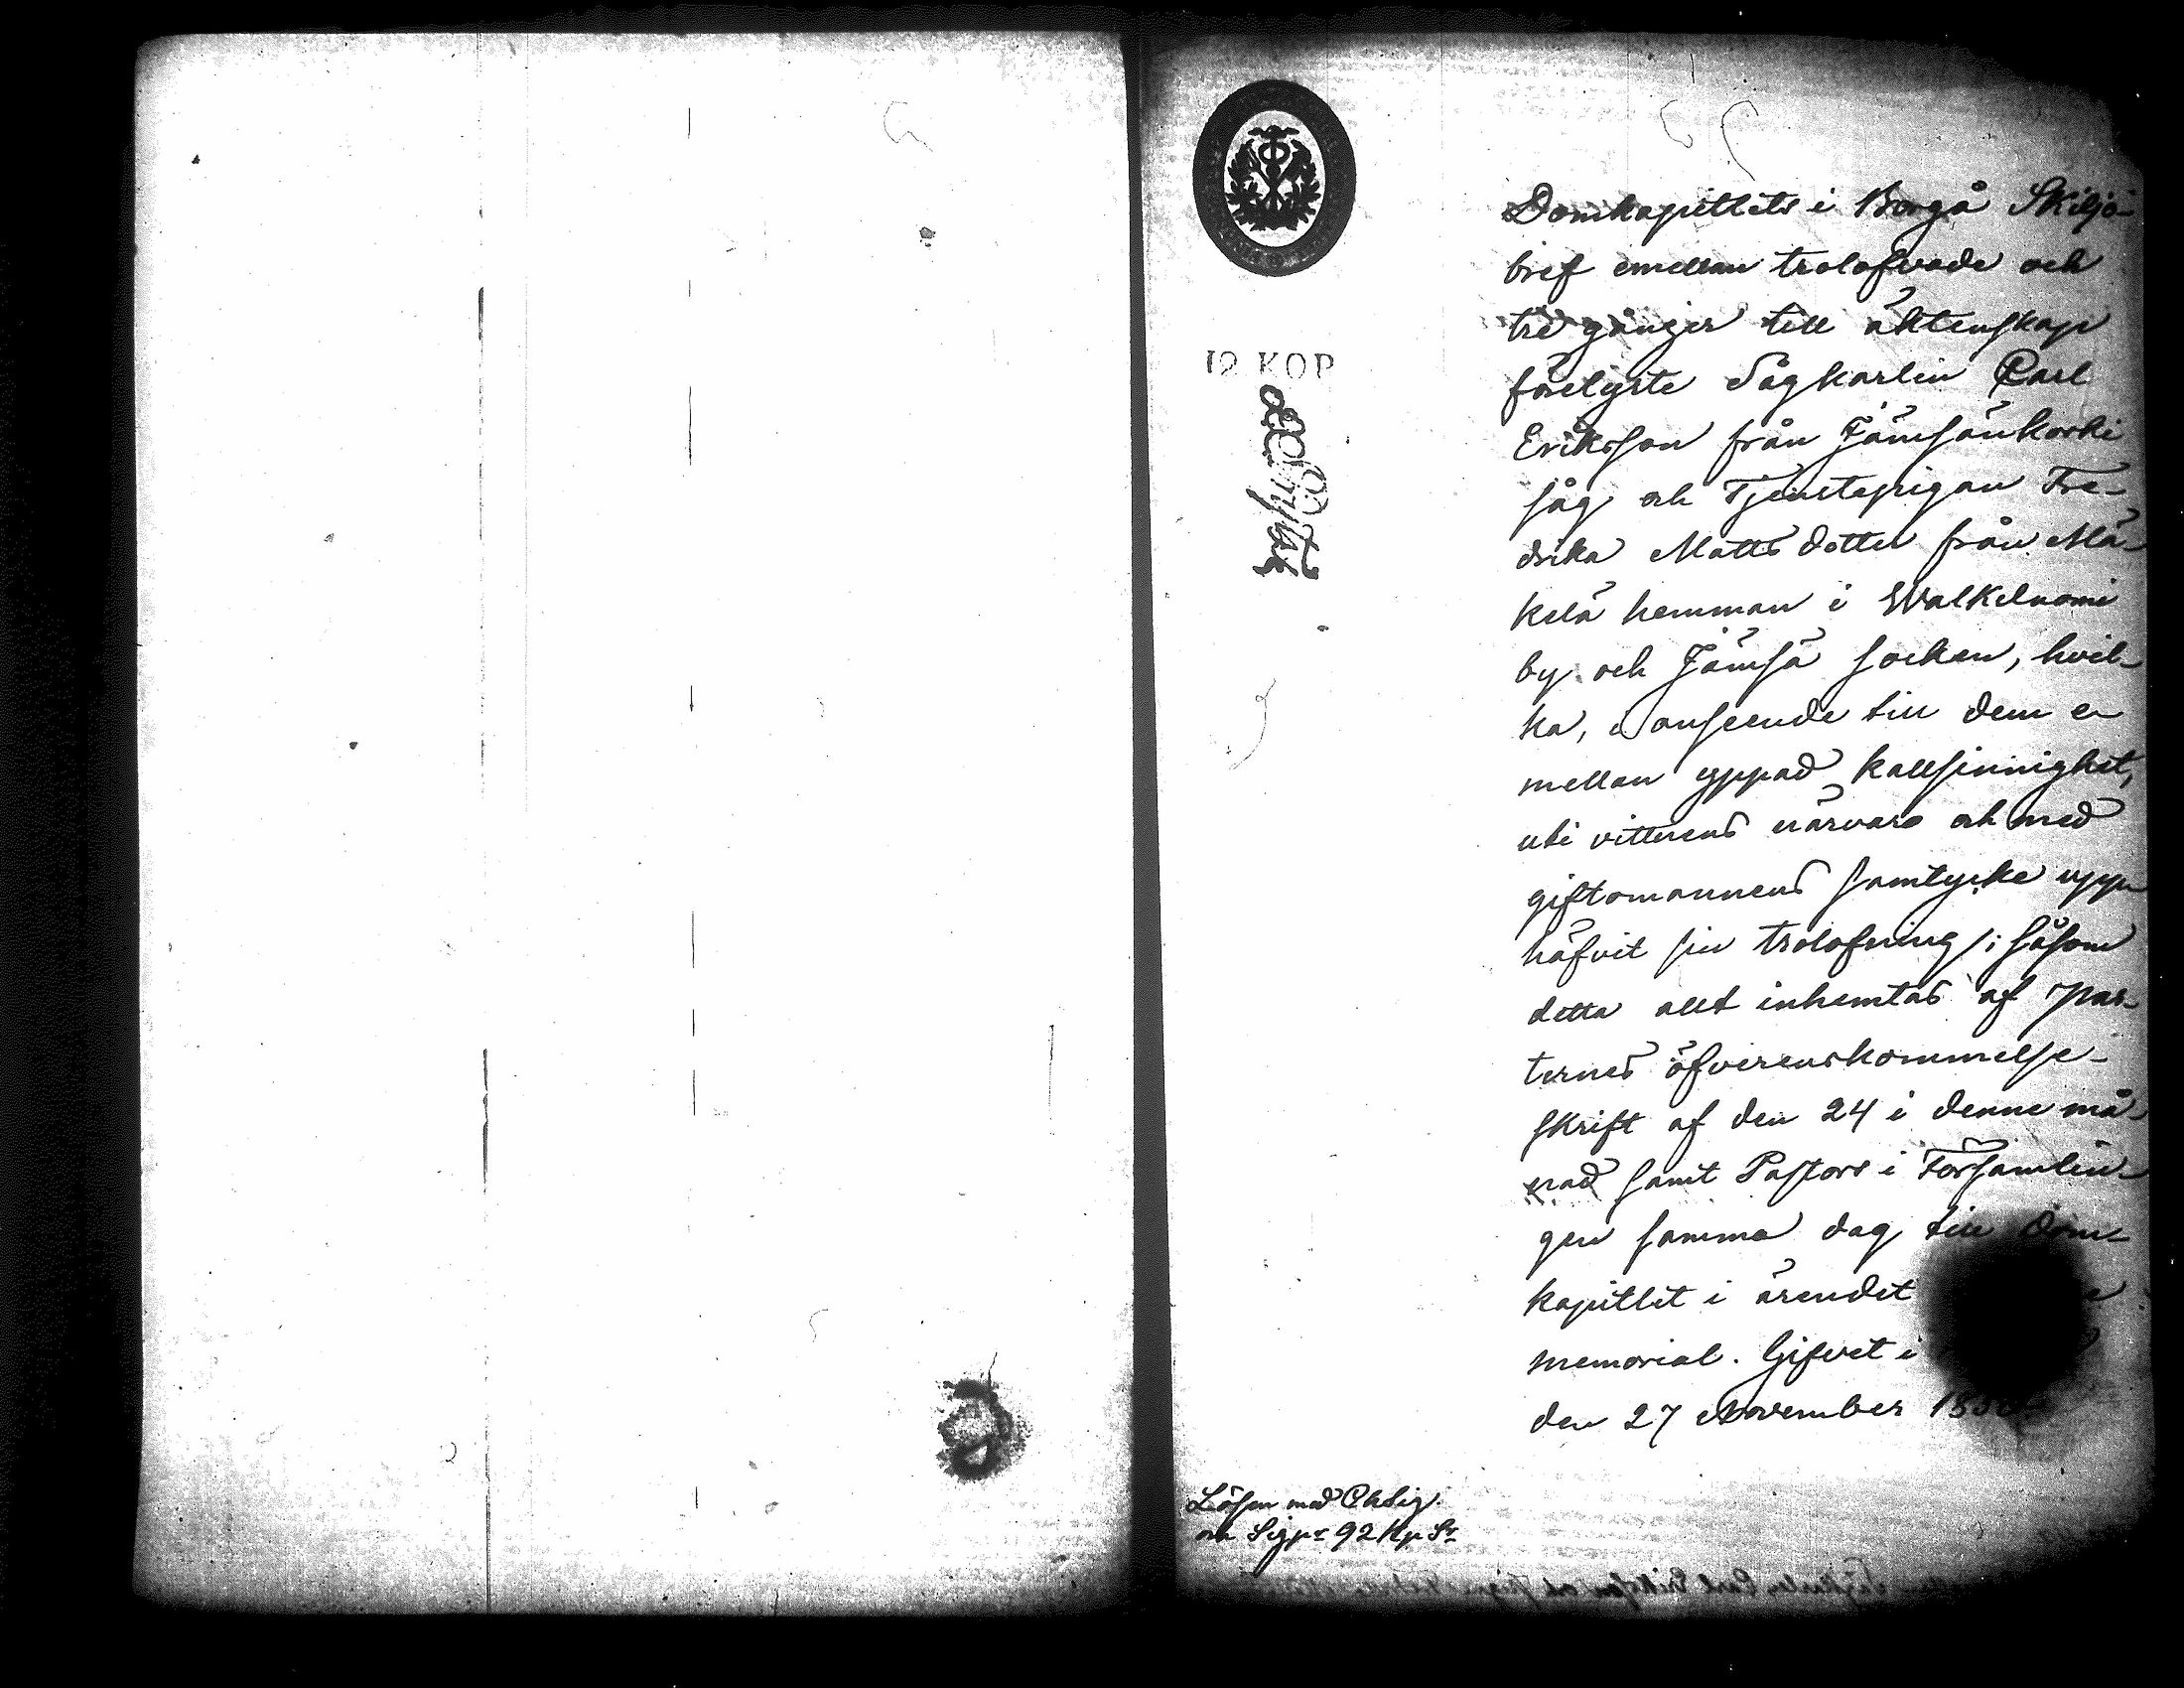 Domkapitlets i Borgå Skiljo-
bref emellan trolofvade och
tre gånger till äktenskap
förelyste Sågkarlen Carl
Eriksson från Jämsänkoski
såg och Tjenstepigan Fre-
drika Mattsdotter från Mä-
kelä hemman i Walkeluomi
by och Jämsä socken, hvil-
ka, i anseende till dem e-
mellan yppad kallsinnighet,
uti vittnens närvaro och med
giftomannens samtycke upp-
häfvit sin trolofning; såsom
detta allt inhemtas af par-
ternes öfverenskommelse-
skrift af den 24 i denne må-
nad samt Pastors i Församlin-
gen samma dag till Dom-
kapitlet i ärendet
memorial. Gifvet i
den 27 November
12 KOP
Lösen med Ch Sig.
och Sigpr 92 kp Sr
Sågkarlen Carl Eriksson och Pigan